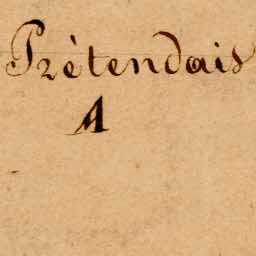 Prètendais
A